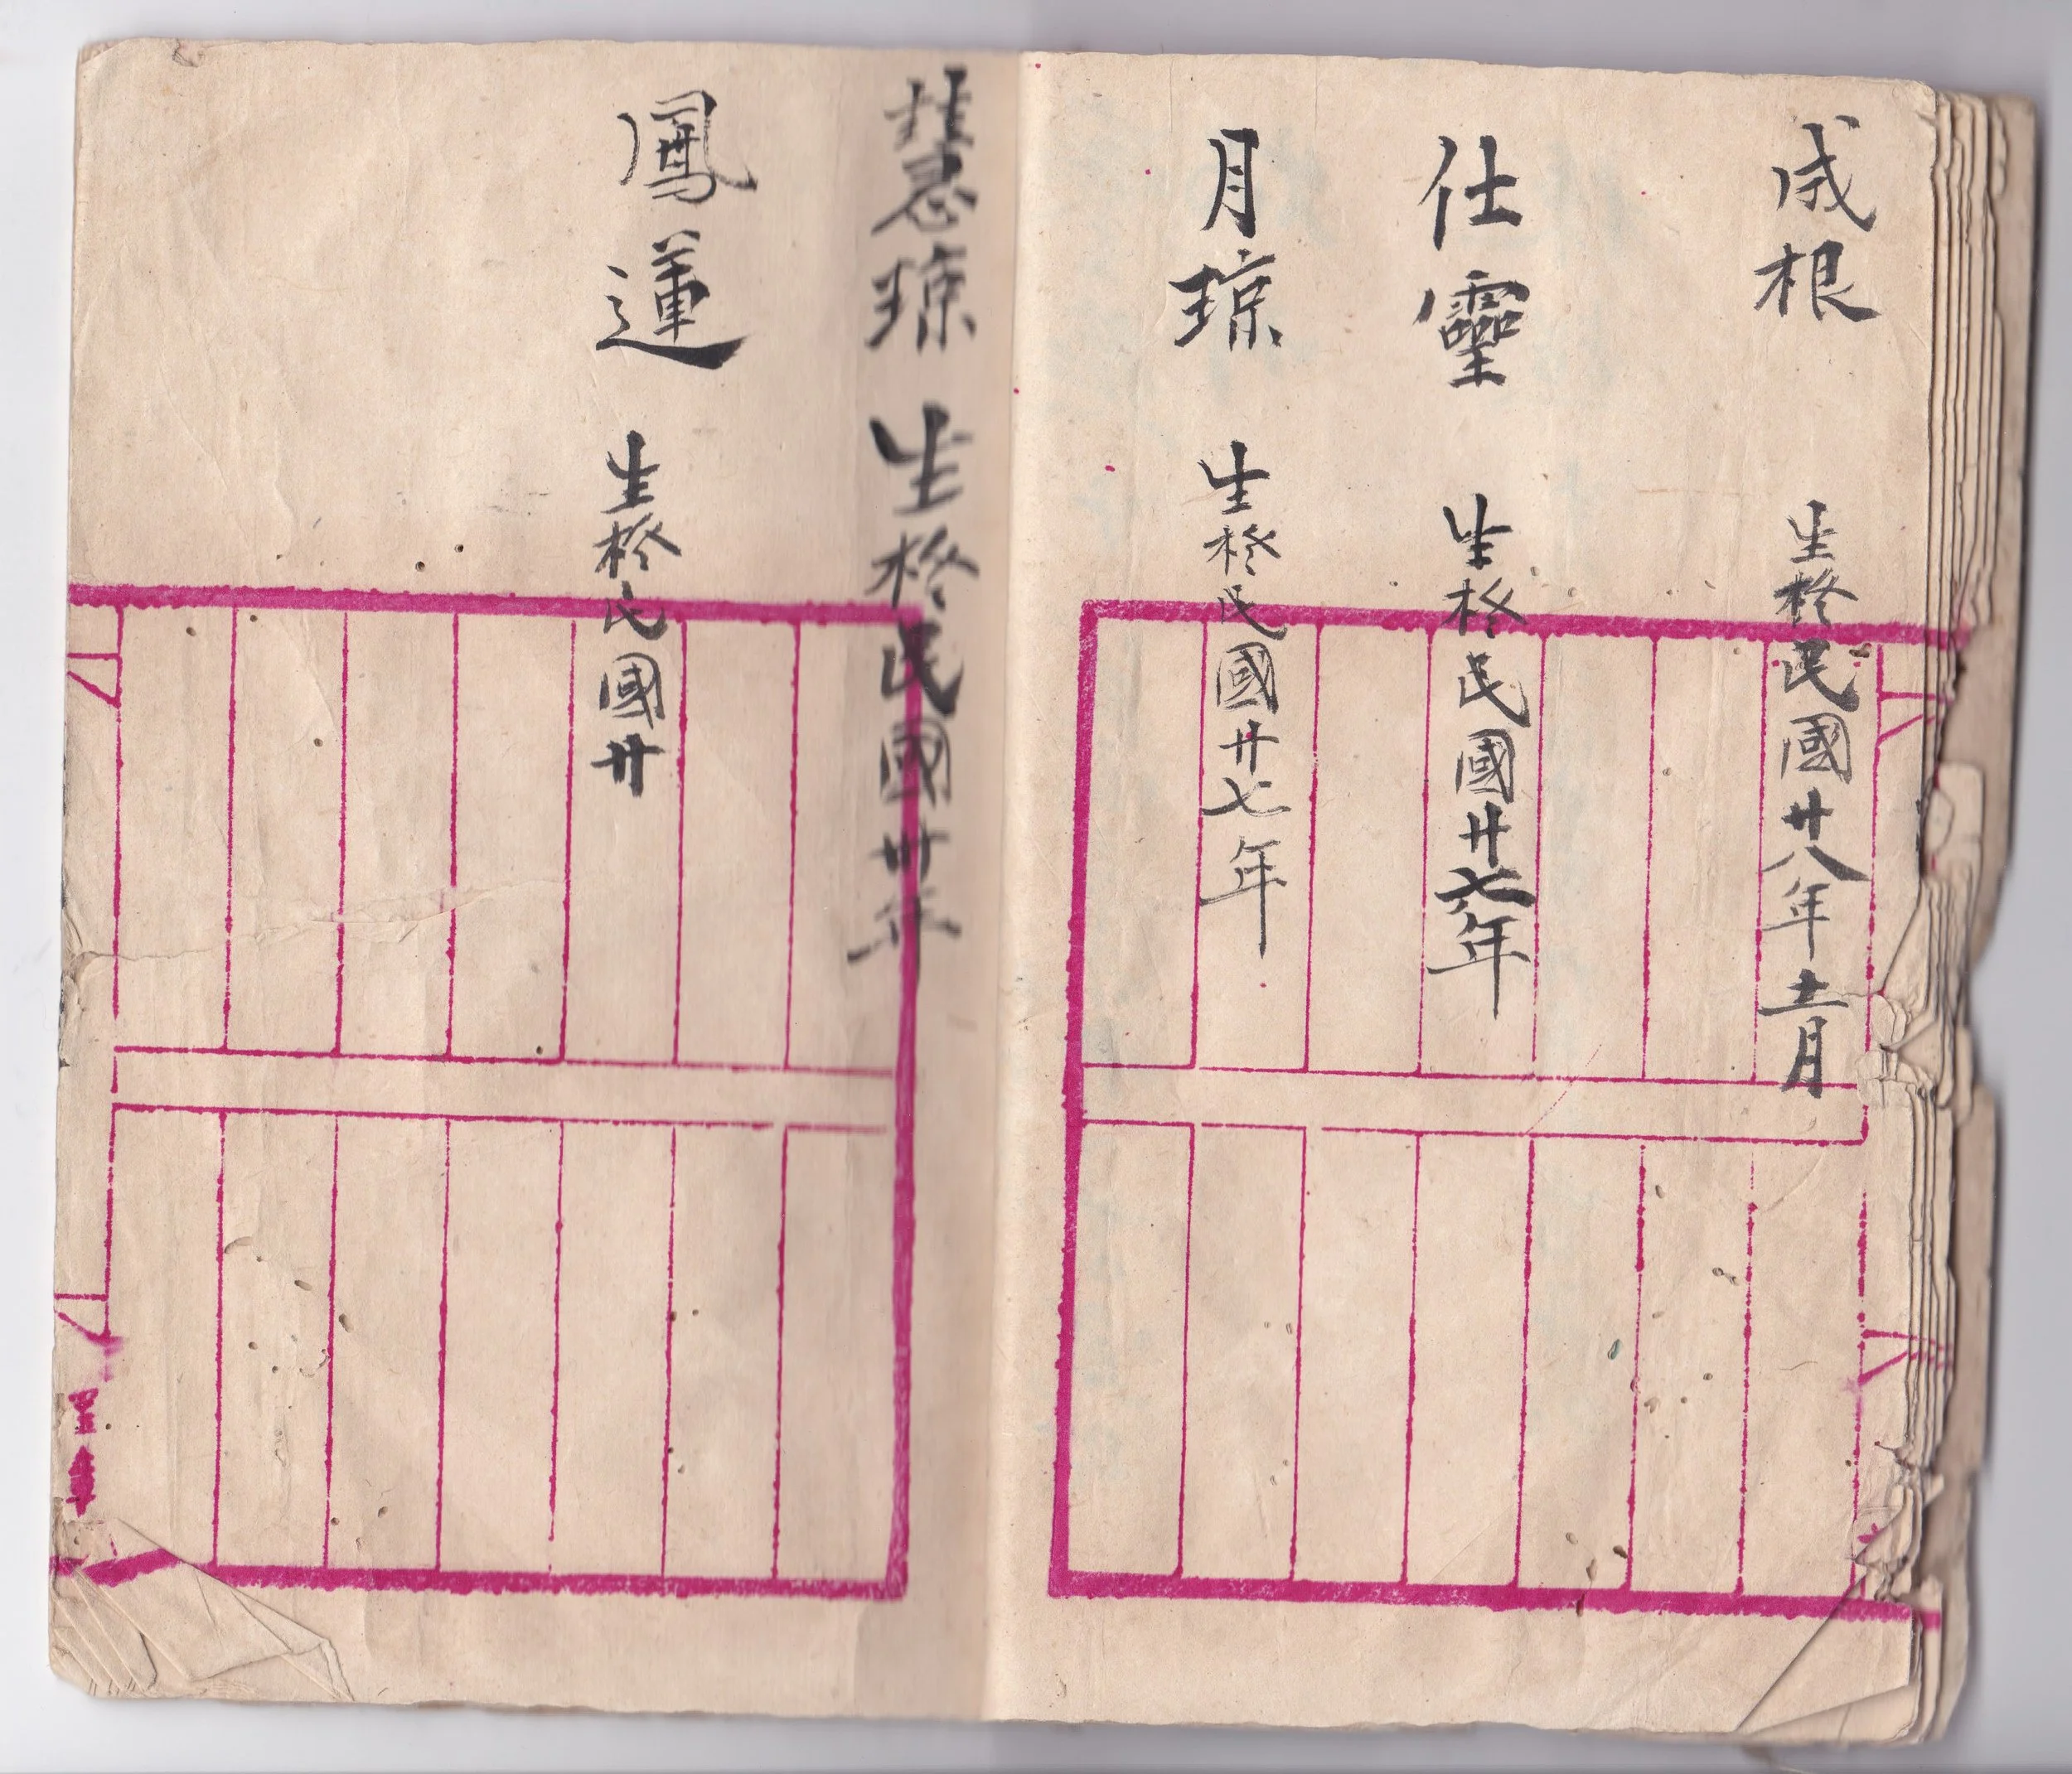 成根 生扵民國廿八年十二月
仕靈 生扵民國廿七年
月琼 生扵民國廿七年
慧琼 生扵民國卅年
鳳運 生扵民國廿